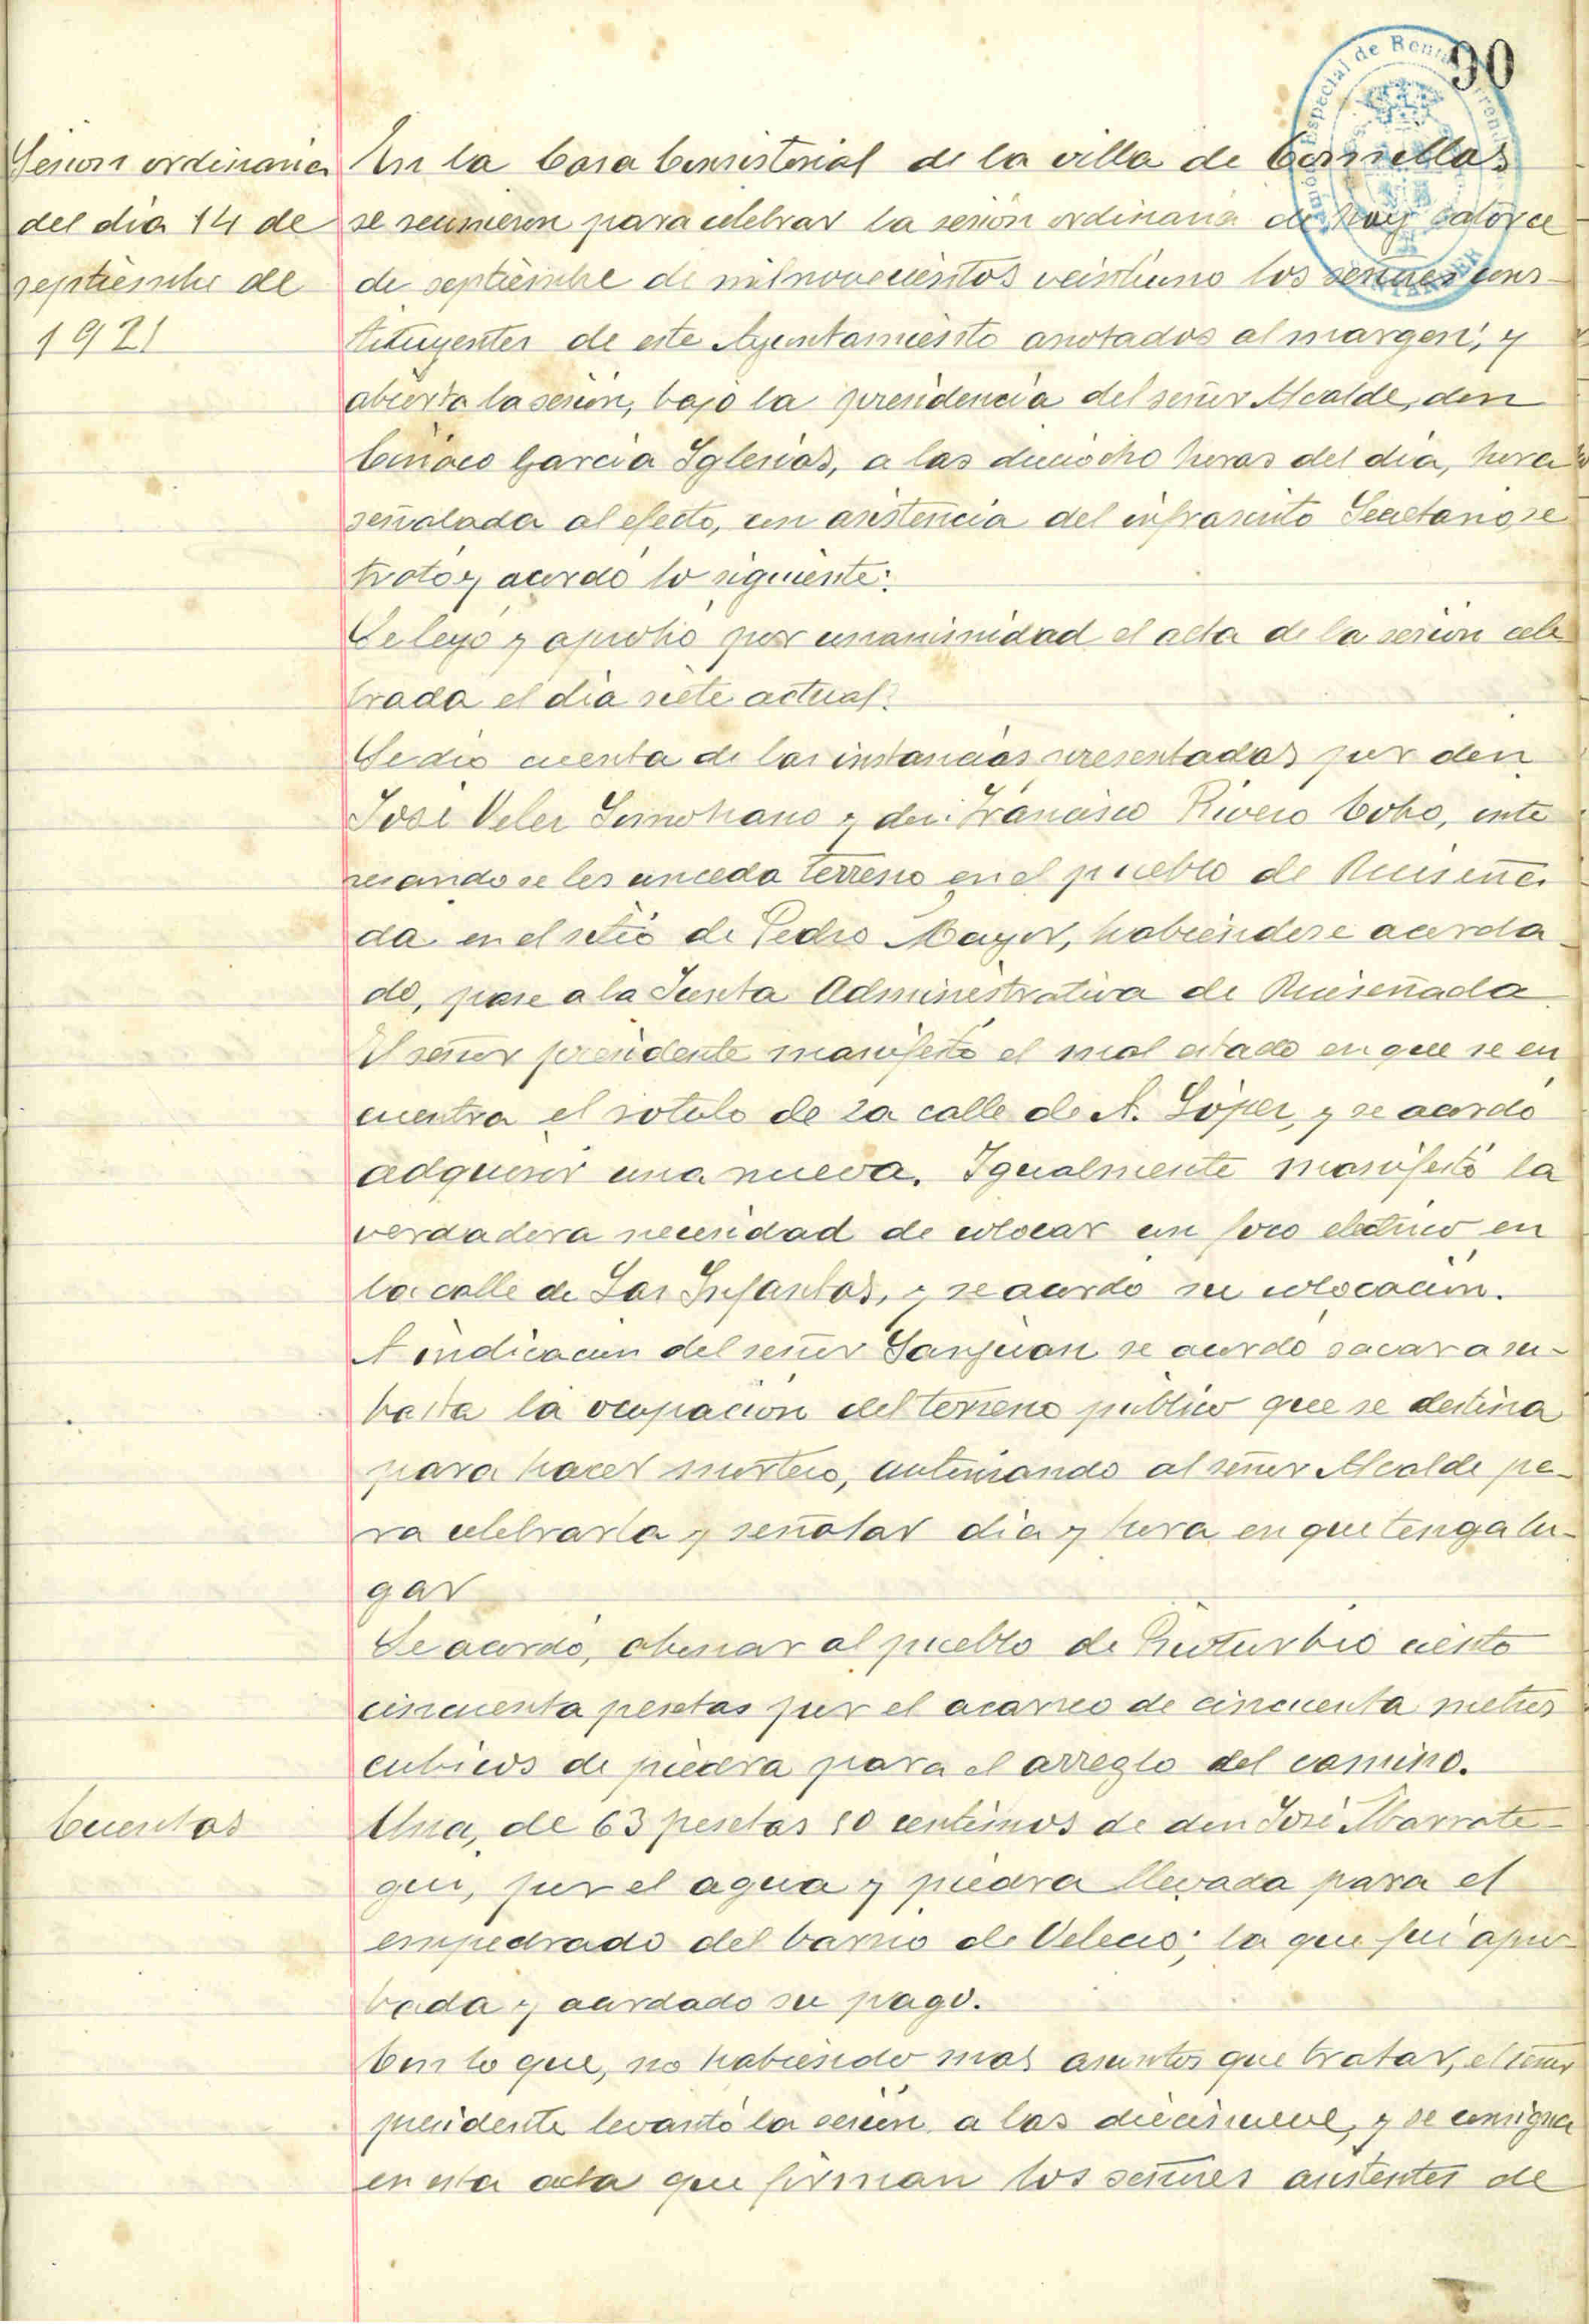 90
Sesion ordinaria
del dia 14 de
septiembre de
1921
En la Casa Consistorial de la villa de Comillas
se reunieron para celebrar la sesión ordinaria de hoy catorce
de septiembre de mil novecientos veintiuno los señores cons-
tituyentes de este Ayuntamiento anotados al margen; y
abierta la sesión, bajo la presidencia del señor Alcalde, don
Ciriaco Garcia Iglesias, a las dieciocho horas del dia, hora
señalada al efecto, con asistencia del infrascrito Secretario, se
trató y acordó lo siguiente:
Se leyó y aprobó por unanimidad el acta de la sesion cele
brada el dia siete actual.
Se dio cuenta de las instancias presentadas por don
José Velez Sumohano y don Francisco Rivero Cobo, inte
resando se les conceda terreno en el pueblo de Ruiseña
da en el sitio de Pedro Mayor, habiendose acorda
do, pase a la Junta Administrativa de Ruiseñada
El señor presidente manifesto el mal estado en que se en
cuentra el rotulo de la calle de A. López, y se acordó
adquirir una nueva. Igualmente manifestó la
verdadera necesidad de colocar un foco electrico en
la calle de Las Infantas, y se acordó su colocacion.
A indicacion del señor Sanjuan se acordó sacar a su-
basta la ocupacion del terreno publico que se destina
para hacer mortero, autorizando al señor Alcalde pa-
ra celebrarla y señalar dia y hora en que tenga lu-
gar
Se acordó, abonar al pueblo de Rioturbio ciento
cincuenta pesetas por el acarreo de cincuenta metros
cubicos de piedra para el arreglo del camino.
Cuentas
Una, de 63 pesetas 80 centimos de don José Ibarrate-
gui, por el agua y piedra llevada para el
empedrado del barrio de Velecio; la que fué apro
bada y acordado su pago.
Con lo que, no habiendo mas asuntos que tratar, el señor
presidente levantó la sesion a las diecinueve, y se consigna
en esta acta que firman los señores asistentes de